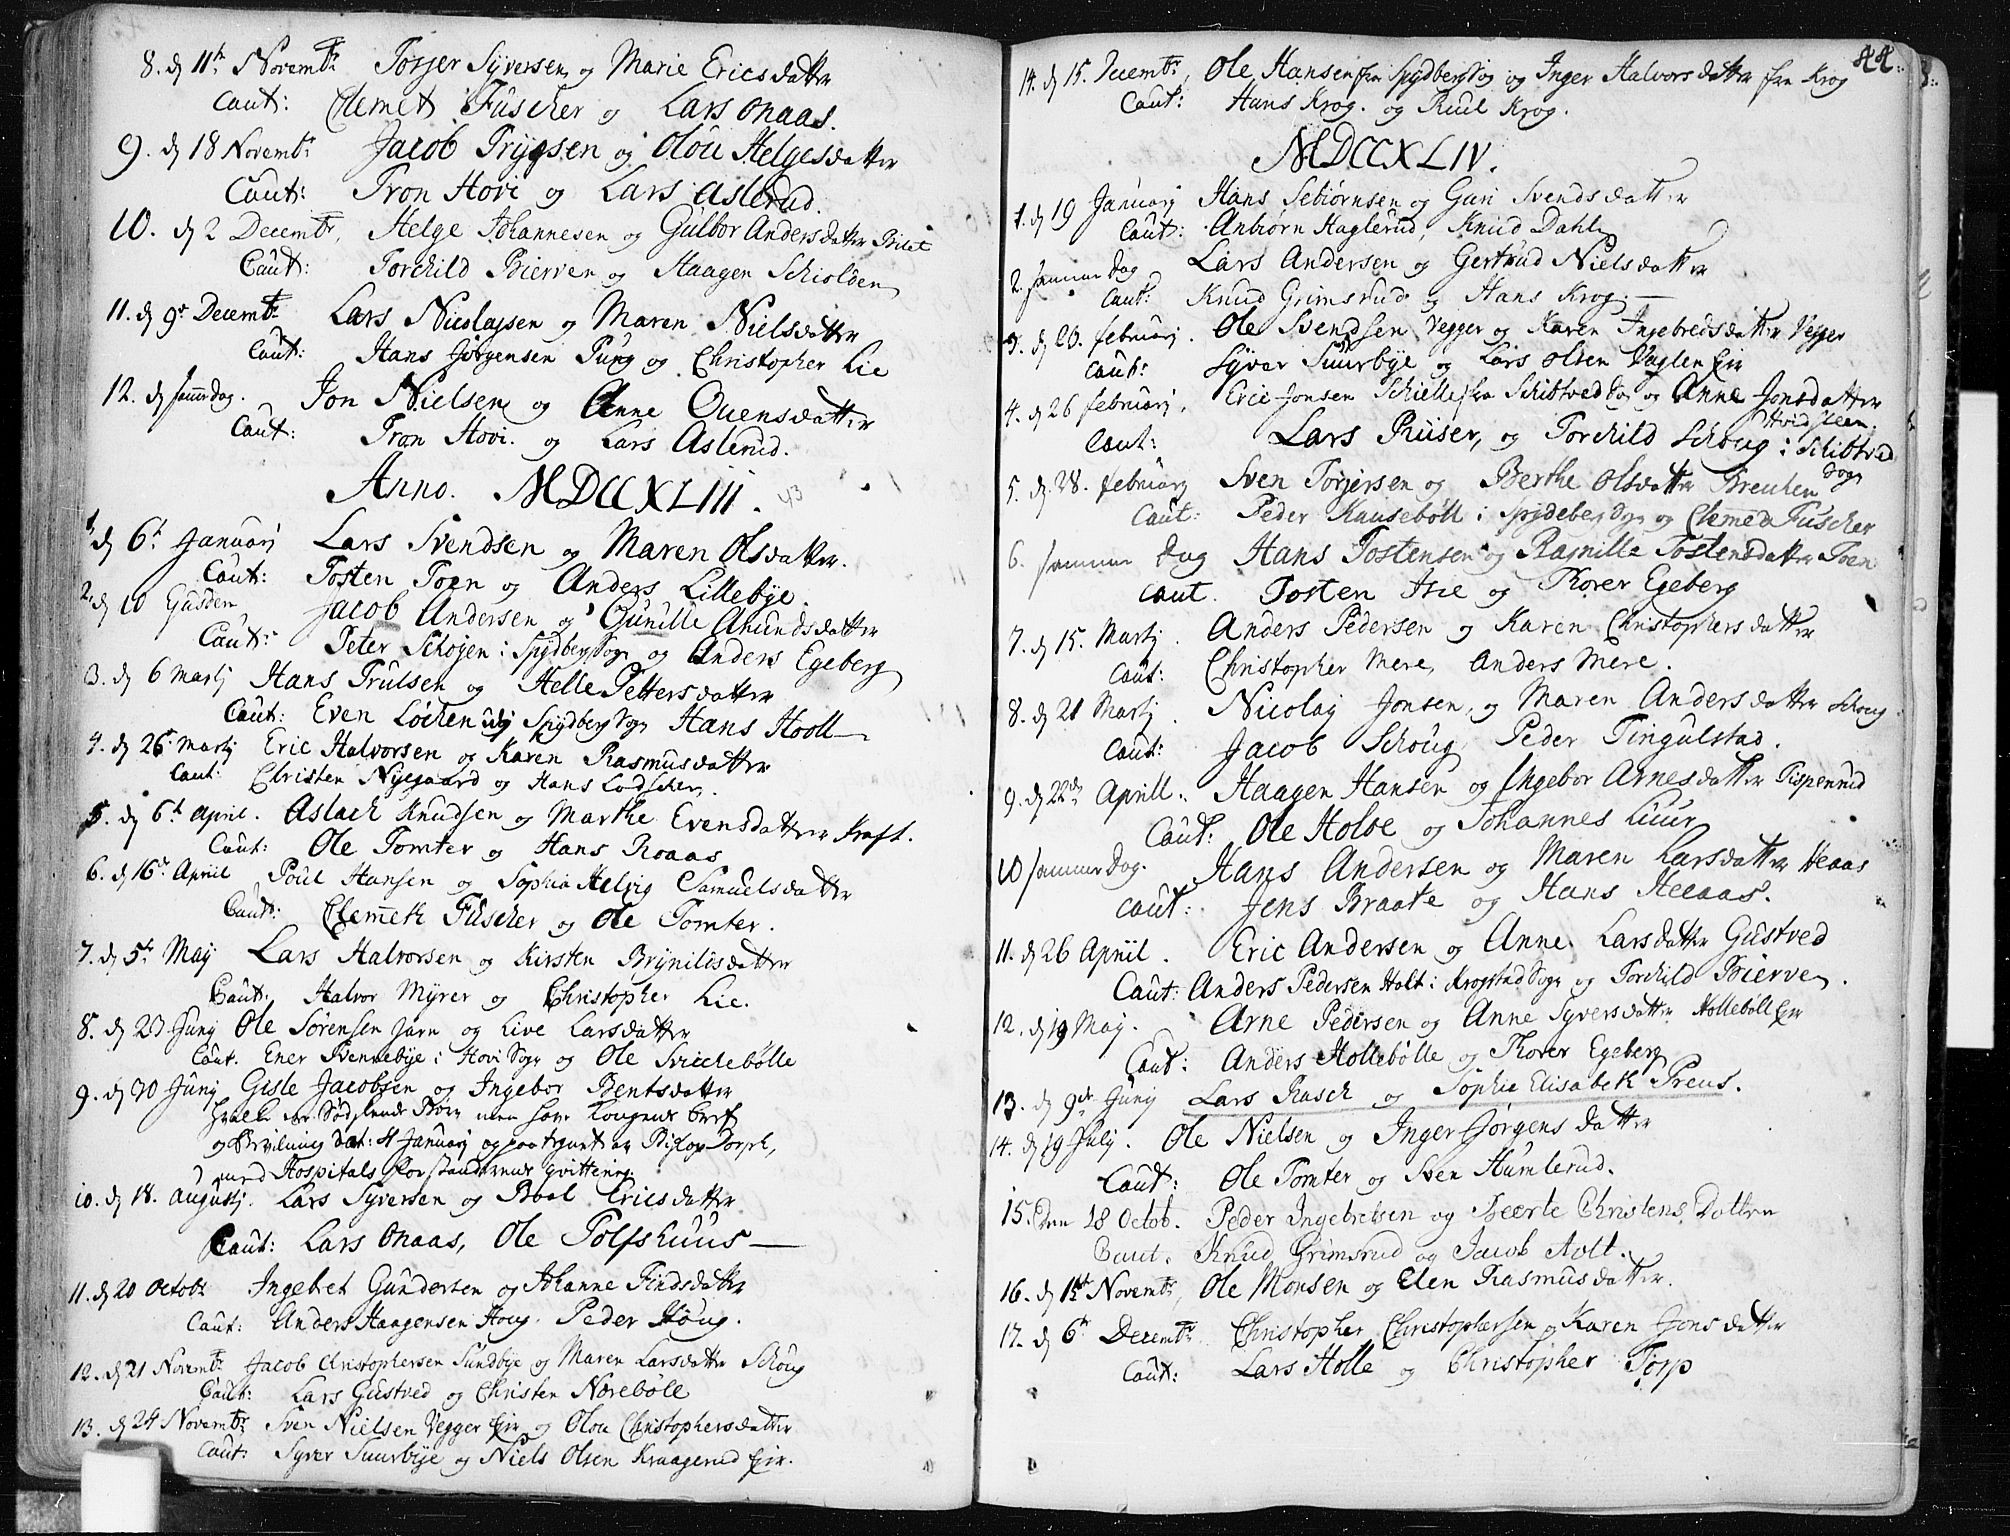 8. d 11te Novembr Torger Syversen og Marie Ericsdatter
Caut: Clemet Füscher og Lars Onaas.
9. d 18 Novembr Jacob Trygsen og Olou Helgesdatter
Caut: Tron Hovi og Lars Aslerud.
10. d 2 Decembr, Helge Johannesen og Gulbor Andersdatter
Caut: Torchild Bierven og Haagen Schiolden
11. d 9de Decembr Lars Nicolajsen og Maren Nielsdatter
Caut: Hans Jørgensen Pung og Christopher Lie
12. d samme dag. Jon Nielsen og Anne Ouensdatter
Caut: Tron Hovi. og Lars Aslerud.
Anno. MDCCXLIII. 43
1. d 6te Januarj Lars Svendsen og Maren Olsdatter.
Caut: Tosten Toen og Anders Lillebye.
2. d 10 Jacob Andersen og Gunille Amundsdatter
Caut: Peter Schojen i Spydberg Sogn og Anders Egeberg
3. d 6 Martj Hans Trulsen og Helle Pettersdatter
Caut: Even Løchen udj Spydberg Sogn Hans Hooll
4. d 26 Martj Eric Halvorsen og Karen Rasmusdatter
Caut: Christen Nyegaard og Hans Lodscher.
5. d 6te April. Aslach Knudsen og Marthe Evensdatter Kraft.
Caut: Ole Tomter og Hans Roaas
6. d 16de April Poul Hansen og Sophia Helvig Samuelsdatter
Caut: Clemeth Füscher og Ole Tomter.
7. d 5te Maij Lars Halvorsen og Kirsten Brynilsdatter
Caut: Halvor Myrer og Christopher Lie.
8. d 23 Junj Ole Sørensen Jarn og Live Larsdatter
Caut. Ener Svennebye i Hovi Sogn og Ole Svichebølle
9. d 30 Junj Gisle Jacobsen og Ingebor Bentsdatter
hvilke er Sødskende Børn men have Kongens bref
og Bevilning Dat: 4 Januarj og paategnet av Biskop Dorph,
med Hospitals Forstanderens qvittering.
10. d 18. Augustj. Lars Syversen og Boel Ericsdatter
Caut: Lars Onaas, Ole Tolfshuus
11. d 20 Octobr Ingebret Gundersen og Johanne Findsdatter
Caut: Anders Haagensen Houg. Peder Houg.
12. d 21 Novembr Jacob Christophersen Sundbye og Maren Larsdatter Schoug
Caut: Lars Gustved og Christen Norebøle
13. d 24 Novembr Sven Nielsen Vegger Eir og Olou Christophersdatter
Caut: Syver Suurbye og Niels Olsen Kraagerud Eir.
44.
14. d 15. Decembr, Ole Hansen fra Spydberg Sog og Inger Halvorsdatter fra Krog
Caut: Hans Krog. og Ruul Krog.
MDCCXLIV.
1. d 19 Januarj Hans Sebiørnsen og Guri Svendsdatter
Caut: Anbiørn Haglerud, Knud Dahl
2. samme Dag Lars Andersen og Gertrud Nielsdatter
Caut: Knud Grimsrud og Hans Krog.
3. d 20. Februarj. Ole Svendsen Vegger og Karen Ingebredsdatter Vegger
Caut: Syver Suurbye og Lars Olsen Vaglen Eir
4. d 26 Februarj, Eric Jonsen Schielle fra Schibtved Sog og Anne Jonsdatter Hvidsteen.
Caut: Lars Riiser, og Torchild Schoug i Schibtved Sogn
5. d. 28. Februarj Sven Torgersen og Berthe Olsdatter Breuken
Caut: Peder Knusebøll i Spydeberg Sogn og Clemed Füscher
6. samme Dag Hans Tostensen og Ragnille Tostensdatter Toen
Caut. Tosten Hie og Thorer Egeberg
7. d 15. Martj. Anders Pedersen og Karen Christophersdatter
Caut: Christopher Mere, Anders Mere.
8. d 21 Martj. Nicolaj Jonsen, og Maren Andersdatter Schoug
Caut: Jacob Schoug, Peder Tingulstad.
9. d 22de Aprill. Haagen Hansen og Ingebor Arnesdatter Pispenrud
Caut: Ole Holbe og Johannes Luur
10 samme Dag. Hans Andersen og Maren Larsdatter Heaas
Caut: Jens Braate og Hans Heeaas.
11. d 26 Apriil. Eric Andersen og Anne Larsdatter Gustved
Caut: Anders Pedersen Holt i Krogstad Sogn og Torchild Bierven.
12. d 19 Maij. Arne Pedersen og Anne Syversdatter Hollebøll Eir
Caut: Anders Hollebølle og Thorer Egeberg
13. d 9de Junj Lars Rasch og Sophie Elisabeth Preus.
14. d 19 Julj. Ole Nielsen og Inger Jørgensdatter
Caut: Ole Tomter og Sven Humlerud.
15. Den 18 Octob. Peder Ingebretsen og Beerte Christens Datter
Caut. Knud Grimsrud og Jacob Holt.
16. d 15te Novembr, Ole Monsen og Elen Rasmusdatter.
17. d 6te Decembr. Christopher Christophersen og Karen Jonsdatter
Caut: Lars Holle og Christopher Torp